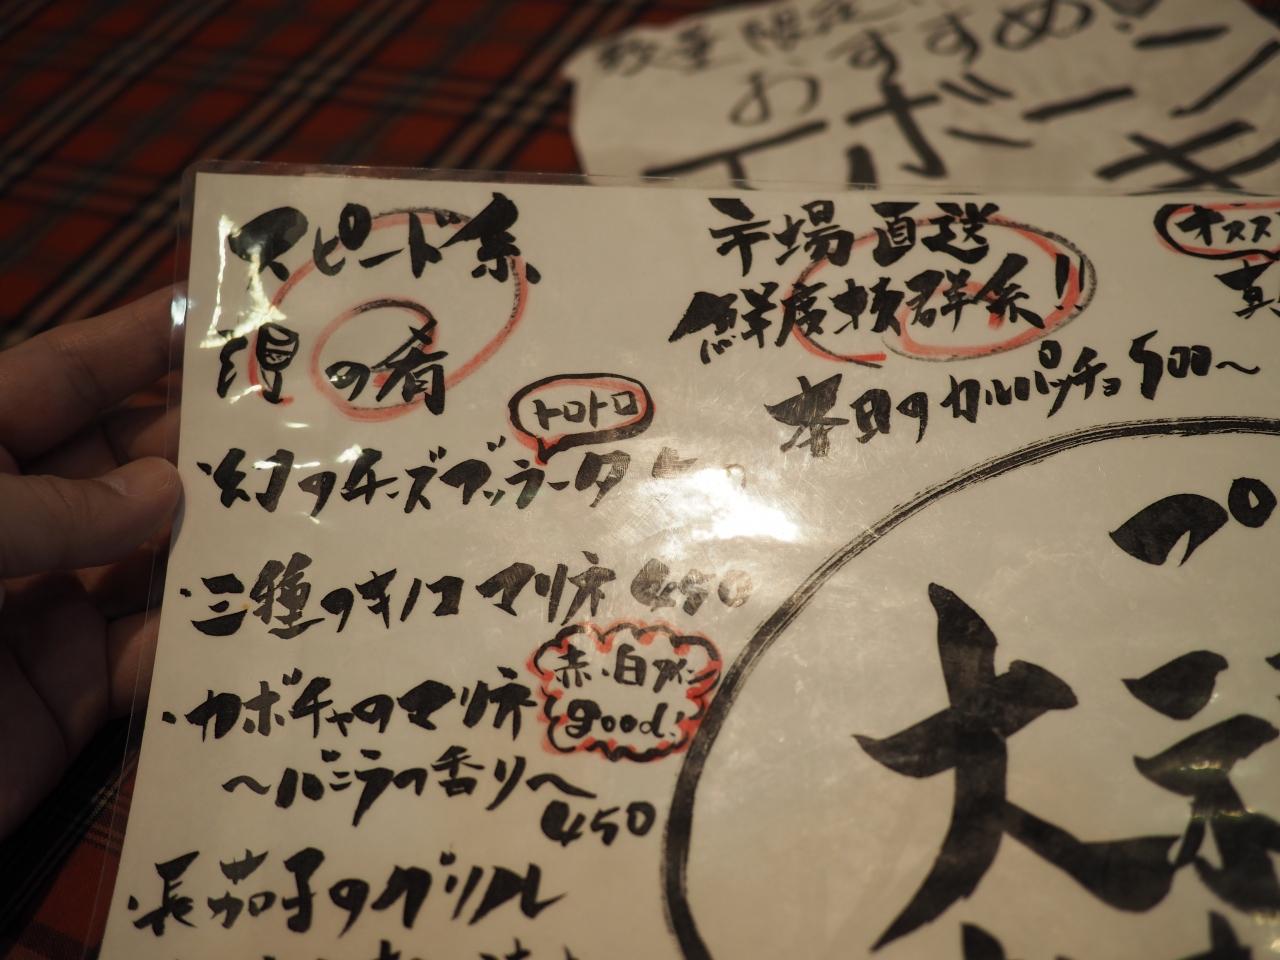 数量限定
おすすめ!
Tボーン
キ
スピード系
須の肴
トロトロ
・幻のチーズブッラータ
・三種のキノコマリネ 450
・カボチャのマリネ
赤・白ワイン
good!
〜バニラの香り〜
450
・長茄子のグリル
市場直送
鮮度抜群系!!
本日のカルパッチョ 500〜
オスス
真
プ
大